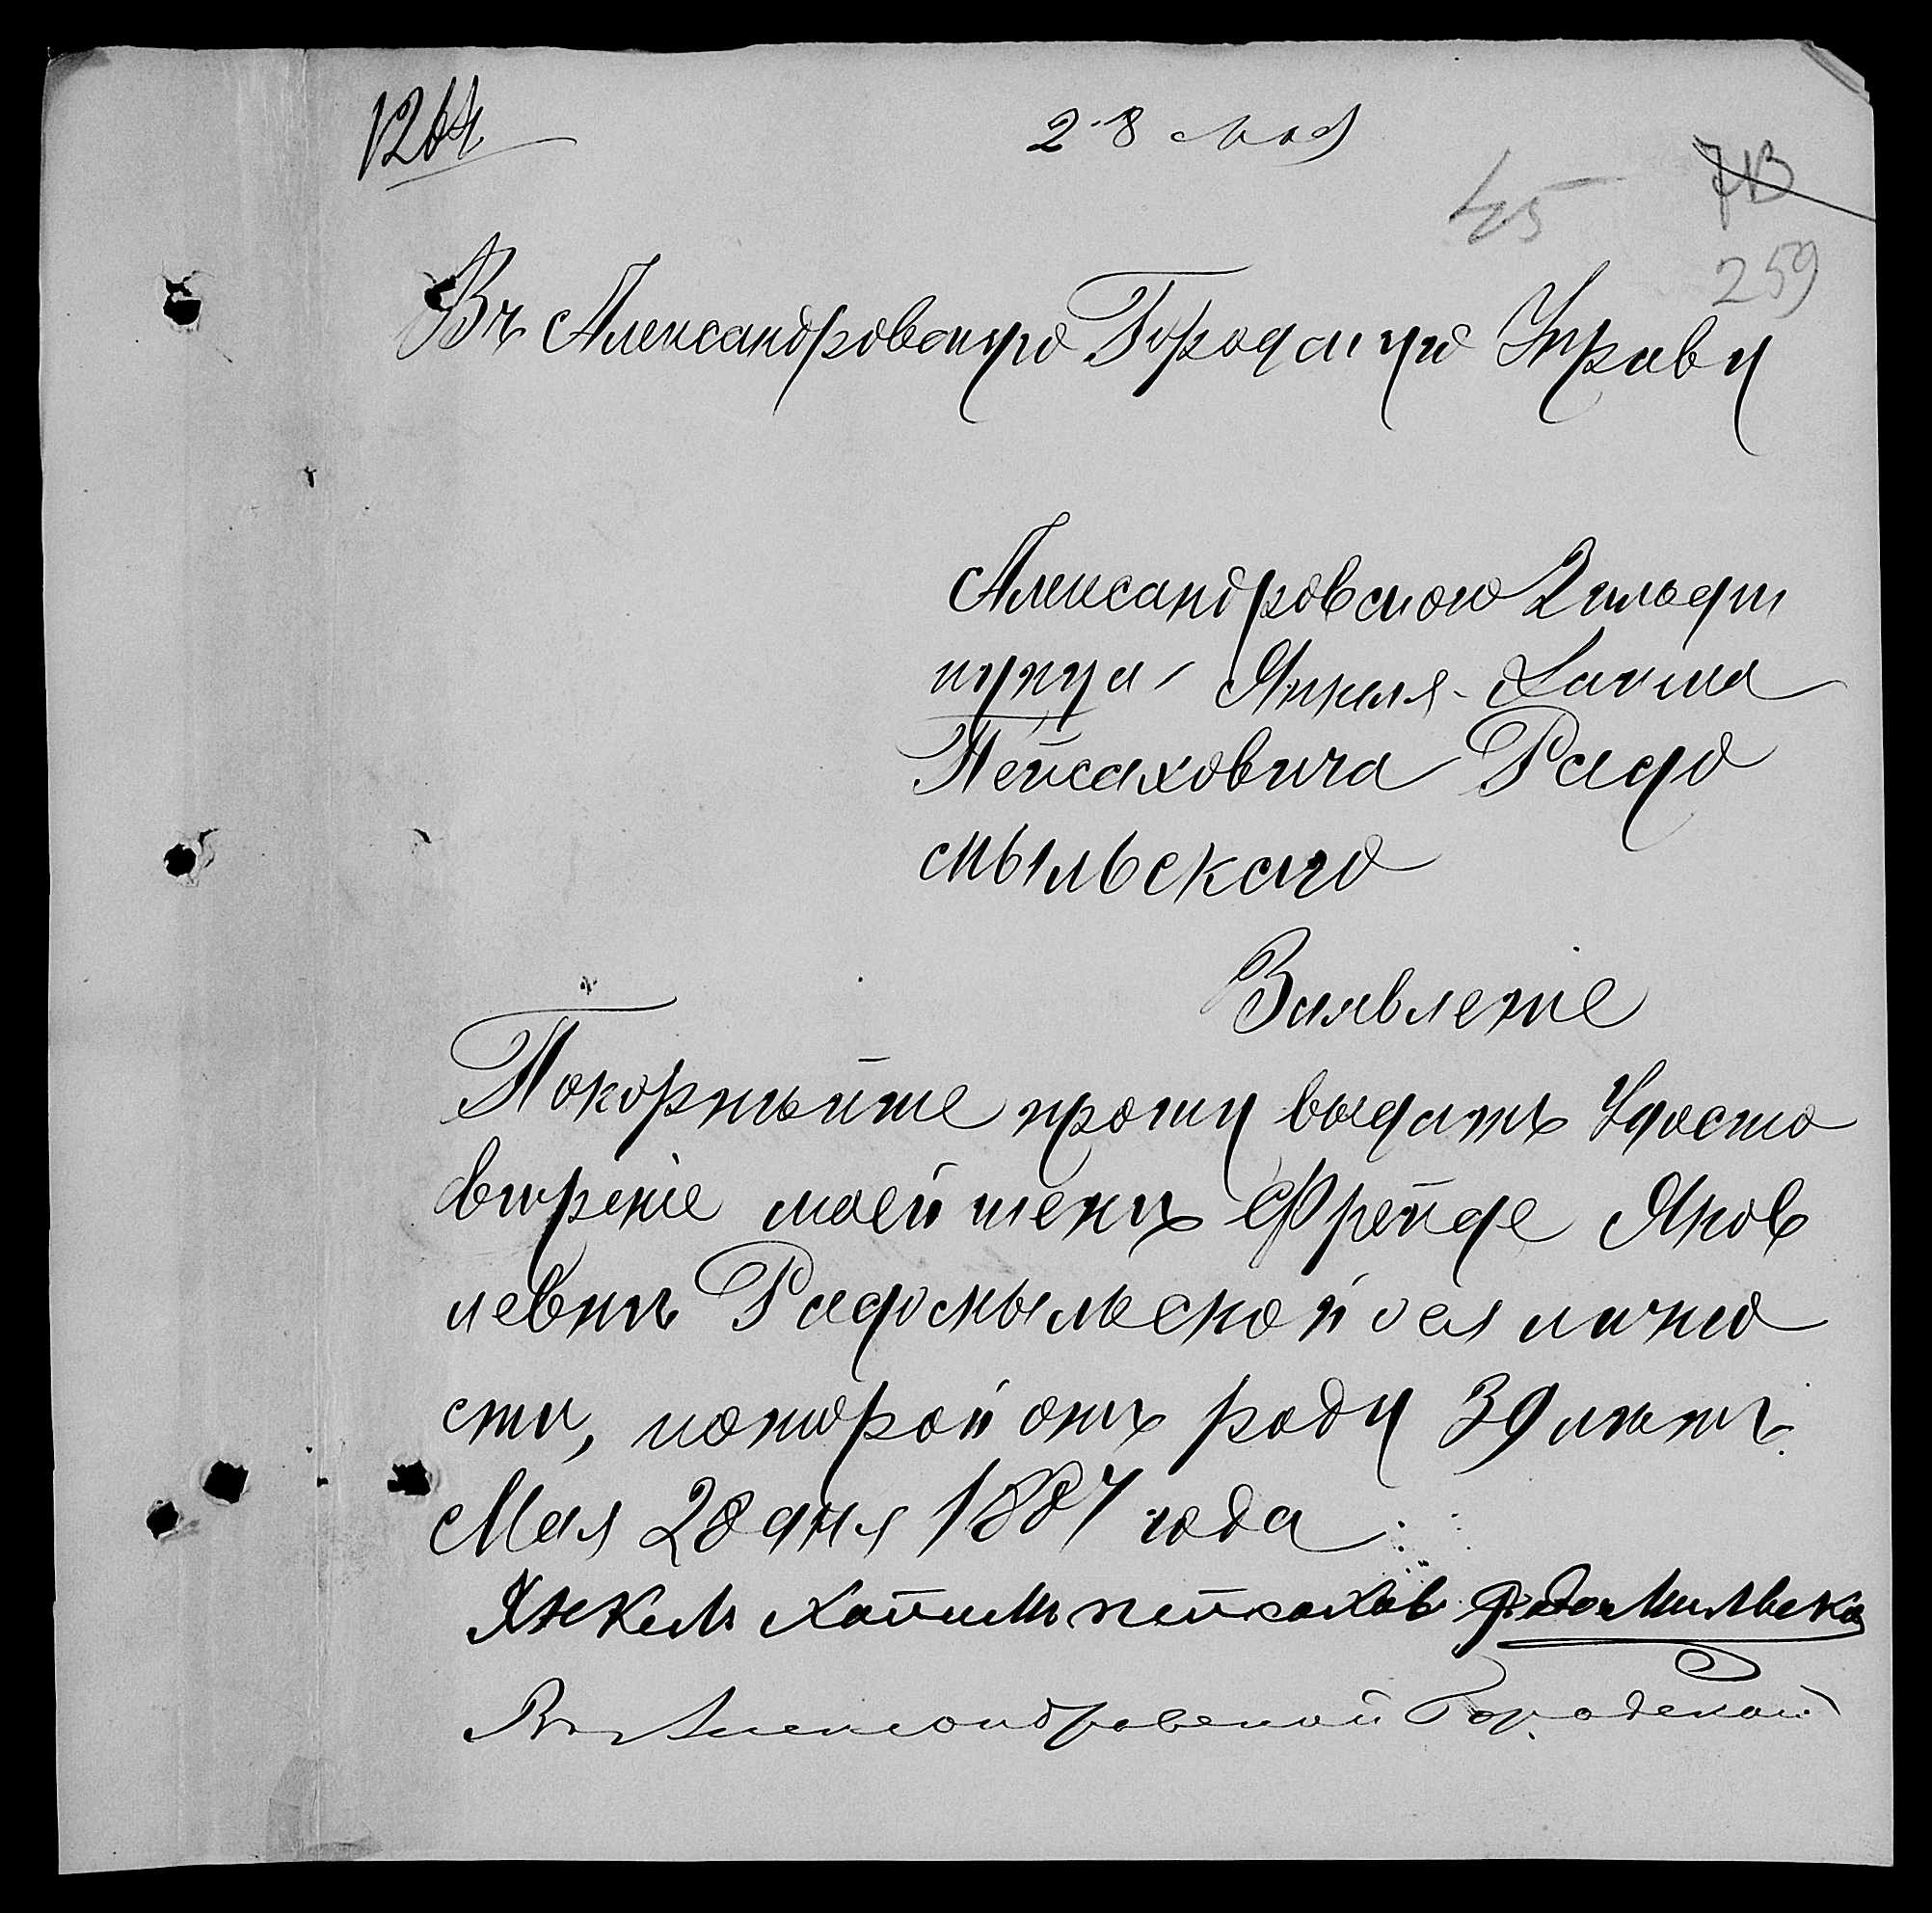 1264
28 мая
45
713
259
Въ Александровскую Городскую Управу
Александровского 2 гильдии
купца Янкеля-Хаима
Пейсаховича Радо
мыльскаго
Заявленіе
Покорнѣйше прошу выдать Удосто
вѣреніе моей женѣ Фрейде Яков
левнѣ Радомыльской о ея лично
сти, которой отъ роду 39 лѣтъ.
Мая 28 дня 1887 года
Янкель Хаимъ пейсахов Радомильска
Въ Александровской Городской